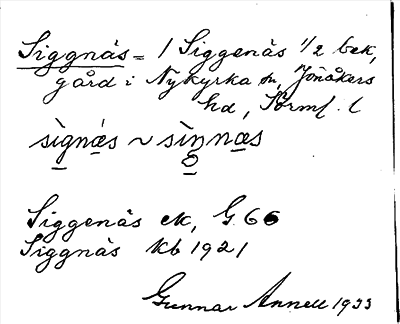 Siggnäs = / Siggenäs 1/2 bek,
gård i Nykyrka sn, Jönåkers
hd, Sörml. l
sìgnæs ~ sìŋnæs
Siggenäs ek, G 66
Siggnäs kb 1921
Gunnar Annell 1933